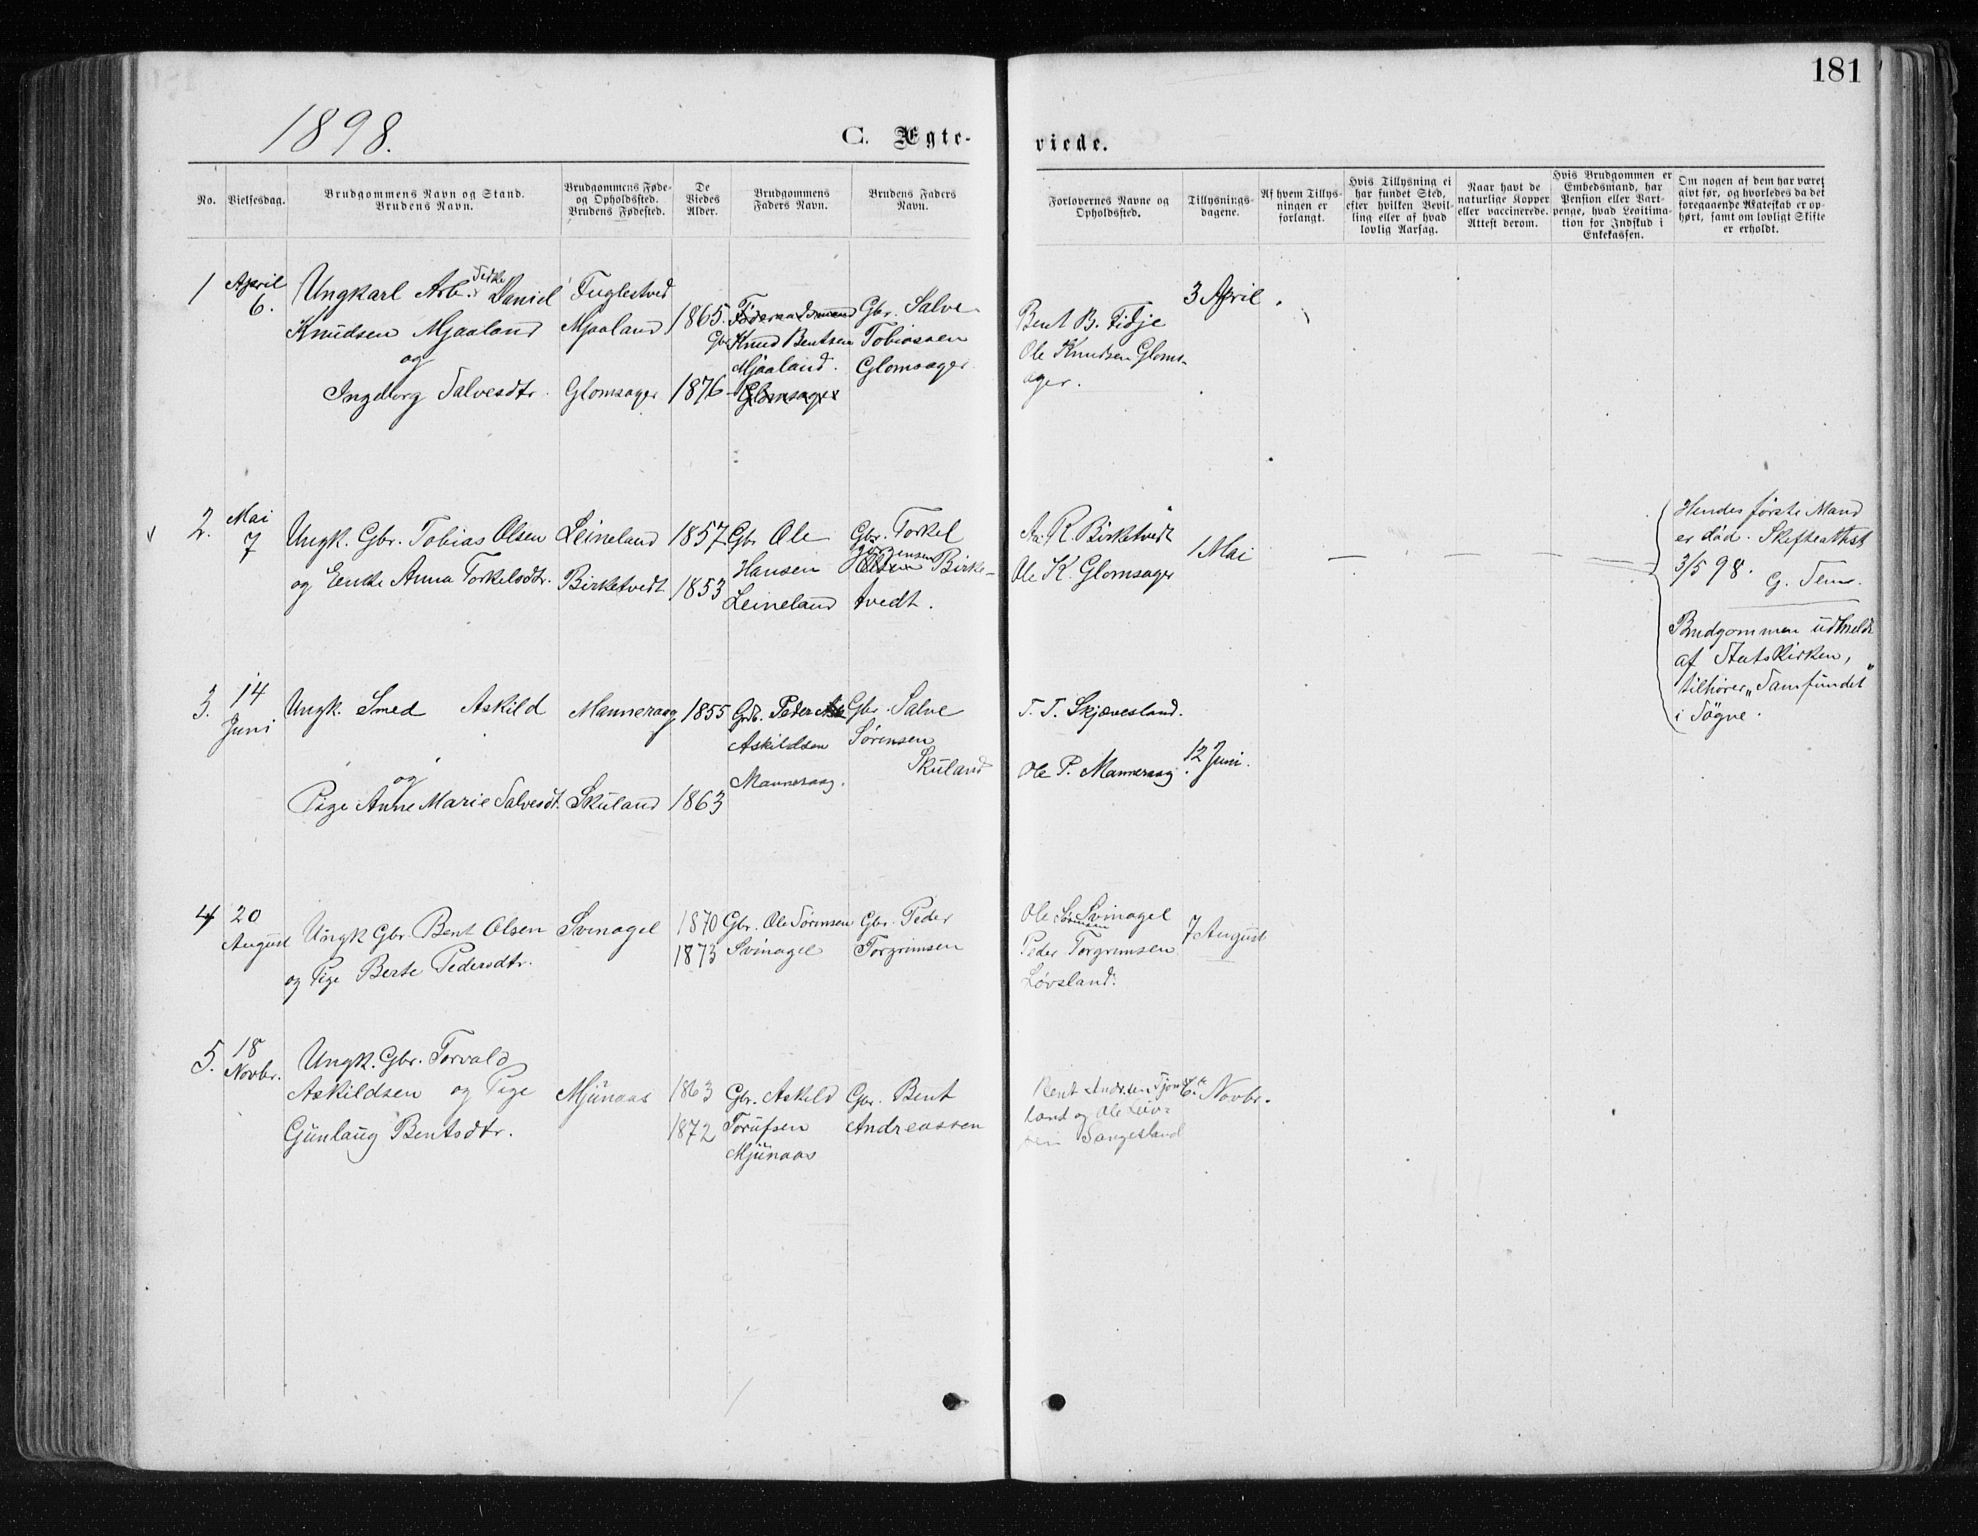 181
1898.
C. Ægte-
viede.
No.
Vielsesdag.
Brudgommens Navn og Stand.
Brudens Navn.
Brudgommens Føde-
og Opholdssted.
Brudens Fødested.
De
Viedes
Alder.
Brudgommens
Faders Navn.
Brudens Faders
Navn.
Forlovernes Navne og
Opholdssted.
Tillysnings-
dagene.
Af hvem Tillys-
ningen er
forlangt.
Hvis Tillysning ei
har fundet Sted,
efter hvilken Bevil-
ling eller af hvad
lovlig Aarsag.
Naar havt de
naturlige Kopper
eller vaccinerede.
Attest derom.
Hvis Brudgommen er
Embedsmand, har
Pension eller Vart-
penge, hvad Legitima-
tion for Indskud i
Enkekassen.
Om nogen af dem har været
givt før, og hvorledes da det
foregaaende Ægteskab er op-
hørt, samt om lovligt Skifte
er erholdt.
1
April
6.
Ungkarl Arb. Daniel
Knudsen Mjaaland
og
Ingeborg Salvesdtr.
Fuglestved
Mjaaland
Glomsager
1865.
1876
Gbr.
Knud Bentsen
Mjaaland.
Glomsager
Gbr. Salve
Tobiassen
Glomsager
Bent B. Fidje
Ole Knudsen Gloms-
ager.
3 April.
2.
Mai
7
Ungk. Gbr. Tobias Olsen
og Enke Anna Torkelsdtr.
Leineland
Birketvedt
1857
1853
Gbr Ole
Hansen
Leineland
Gbr. Torkel
Jørgensen
Birke-
tvedt.
Aa. R. Birketvedt
Ole K. Glomsager
1 Mai
Hendes første Mand
er død. Skifteattest
3/5 98. G. Tem.
Brudgommen udmeldt
af Statskirken,
tilhører „Samfundet"
i Søgne.
3.
14
Juni
Ungk. Smed Askild
og
Pige Anne Marie Salvesdt.
Manneraag
Skuland
1855
1863
Grdb. Peder
Askildsen
Manneraag.
Gbr. Salve
Sørensen
Skuland
T. T. Skjævesland.
Ole P. Manneraag.
12 Juni.
4
20
August
Ungk Gbr Bent Olsen
og Pige Berte Pedersdtr.
Svinagel
1870
1873
Gbr. Ole Sørensen
Svinagel
Gbr. Peder
Torgrimsen
Ole Svinagel
Sørensen
Peder Torgrimsen
Løvsland.
7 August
5.
18
Novbr.
Ungk. Gbr. Torvald
Askildsen og Pige
Gunlaug Bentsdtr.
Mjunaas
1863
1872
Gbr. Askild
Torufsen
Mjunaas
Gbr. Bent
Andreassen
Bent Andrsen
land og Ole
Sangesland
6te Novbr.